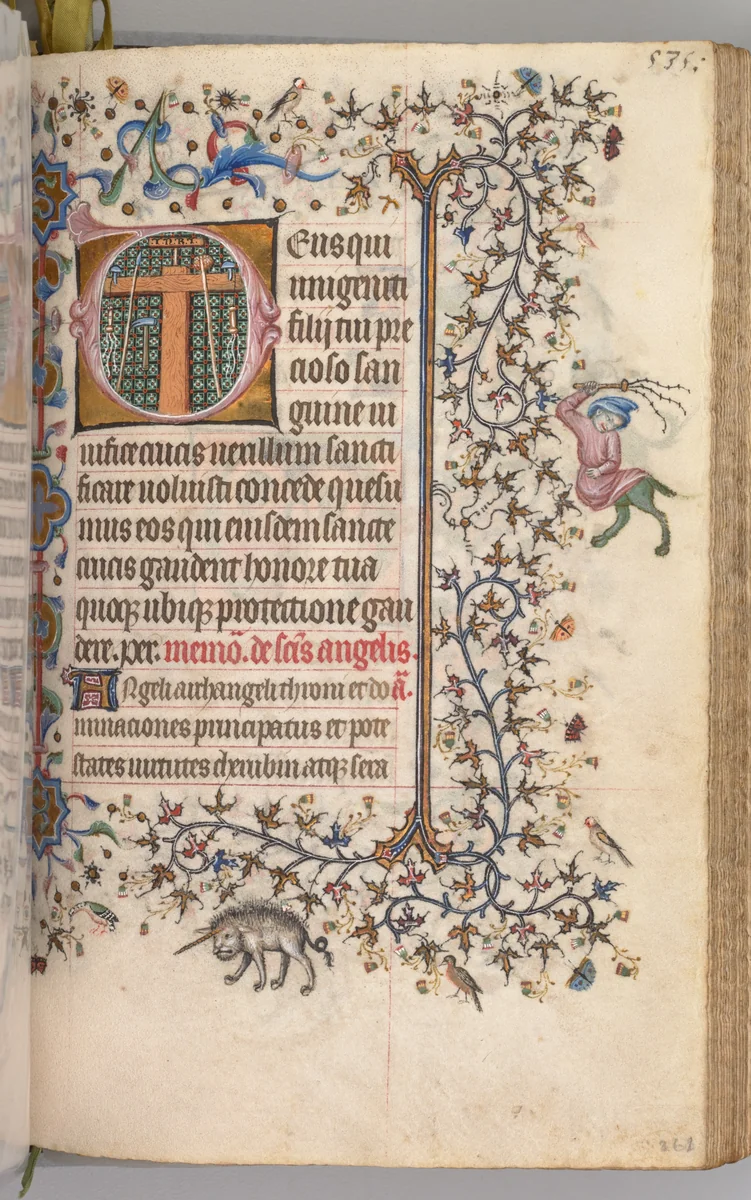 535:
INRI
Deus qui
unigeniti
filij tui pre
cioso san
guine ui
uifice crucis uexillum sancti
ficare uoluisti concede quesu
mus eos qui eiusdem sancte
crucis gaudent honore tua
quoqꝫ ubiqꝫ protectione gau
dere. per. memõ. de scĩs angelis.
Angeli archangeli throni et do ã.
minaciones principatus et pote
states uirtutes cherubin atqꝫ sera
261